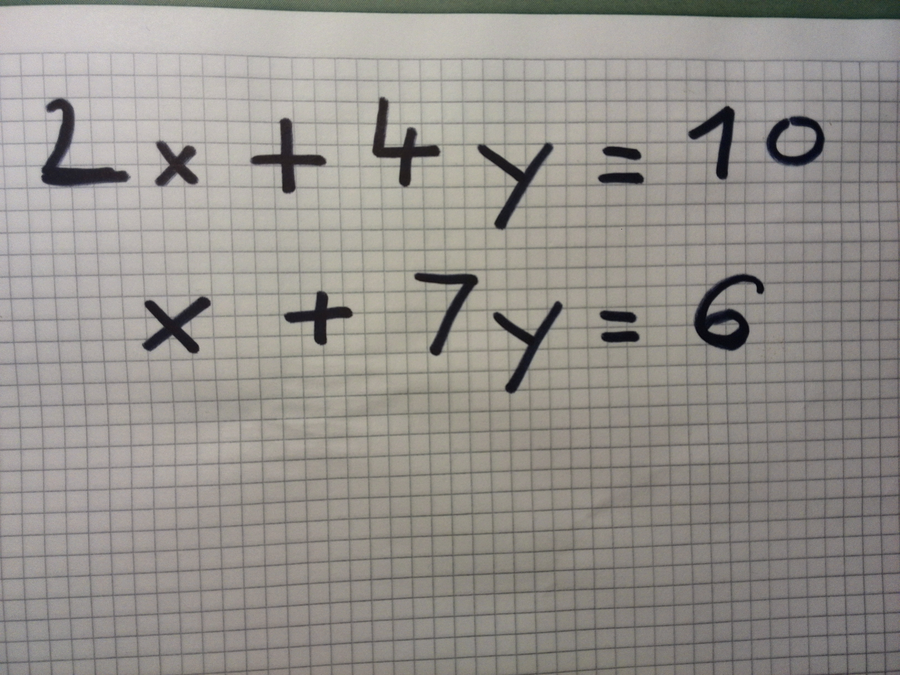 2x + 4y = 10
x + 7y = 6